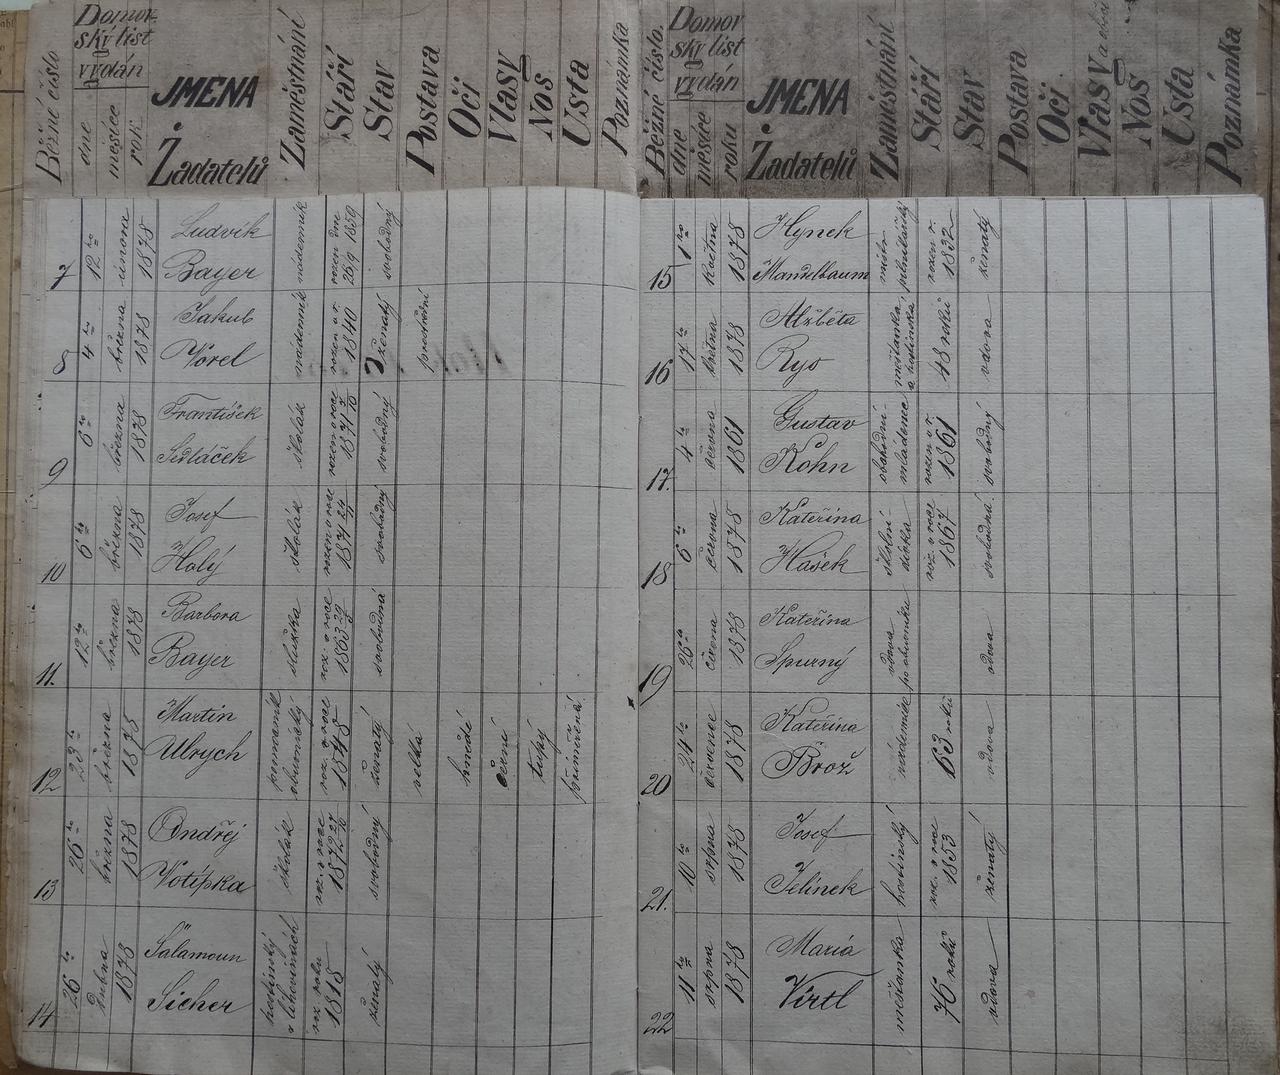 Běžné číslo
Domov-
ský list
vydán
dne
měsíce
rok
JMENA
Žadatelů
Zaměstnání
Stáří
Stav
Postava
Oči
Vlasy
Nos
Usta
Poznámka
7
12ho
února
1878
Ludvík
Bayer
nádenník
rozen dne
26/9 1859
svobodný
8
4ho
března
1878
Jakub
Vorel
nádenník
rozen v r.
1840
ženatý
prostřední
9
6ho
března
1878
František
Sedláček
školák
rozen v roce
1871
svobodný
10
6ho
března
1878
Josef
Holý
školák
rozen v roce
1871 24/11
svobodný
11.
12ho
března
1878
Barbora
Bayer
služka
roz. v roce
1863
svobodná
12
23ho
března
1878
Martin
Ulrych
obuvnický
roz. v roce
1848
ženatý
velká
hnědé
černé
tupý
přiměřená
13
26ho
března
1878
Ondřej
Votípka
školák
roz. v roce
1872 27/10
svobodný
14
26ho
dubna
1878
Salamoun
Sicher
hostinský
v Lhovicích
roz. roku
1818
ženatý
Běžné číslo.
Domov
ský list
vydán
dne
měsíce
roku
JMENA
Žadatelů
Zaměstnání
Stáří
Stav
Postava
Oči
Vlasy
Nos
Usta
Poznámka
15
1ho
května
1878
Hynek
Mandelbaum
mistr
rozen r.
1832
ženatý
16
17ho
května
1878
Alžběta
Rys
měšťanka
48 roků
vdova
17.
4ho
června
1861
Gustav
Kohn
obchodní-
mládenec
rozen v r.
1861
svobodný
18
6ho
června
1878
Kateřina
Hašek
školní-
dívka
roz. v roce
1867
svobodná.
19
26ho
června
1878
Kateřina
Spurný
vdova
po obuvníku
vdova
20
24ho
července
1878
Kateřina
Brož
63 roků
vdova
21.
10ho
srpna
1878
Josef
Jelinek
hostinský
roz. v roce
1853
ženatý
22
11ho
srpna
1878
Maria
Virtl
měšťanka
76 roků
vdova